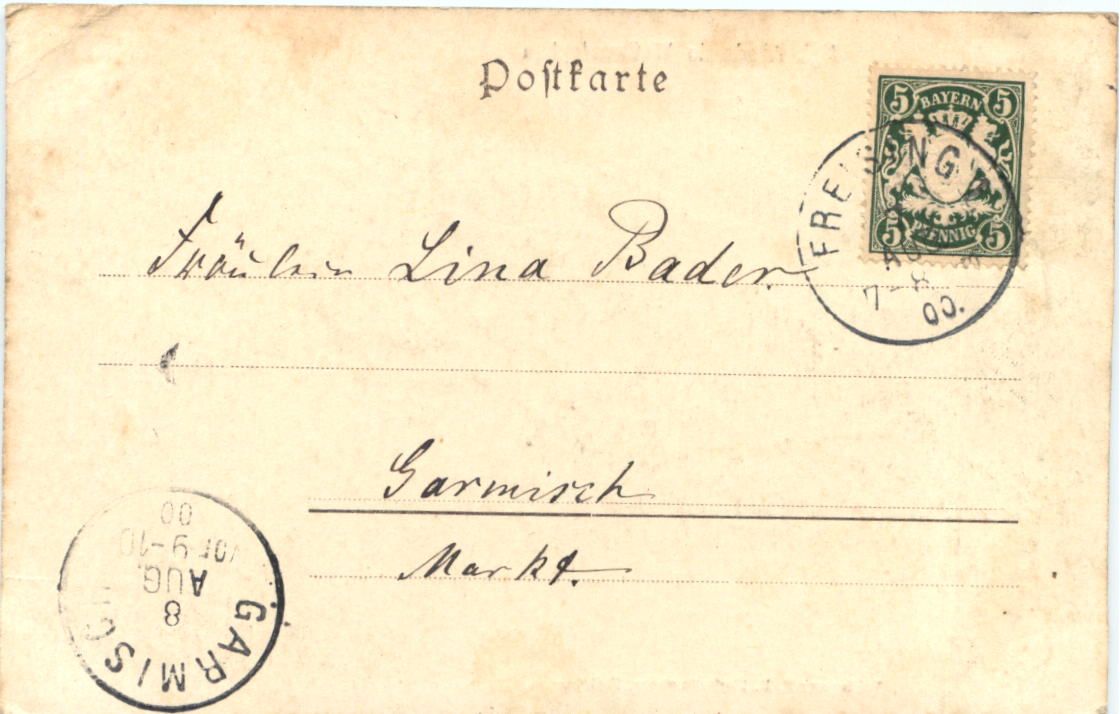 Postkarte
5 BAYERN 5
5 PFENNIG 5
FREISING
7-8
00.
Fräulein Lina Bader.
Garmisch
Markt.
GARMISCH
8
AUG.
Vor 9-10
00